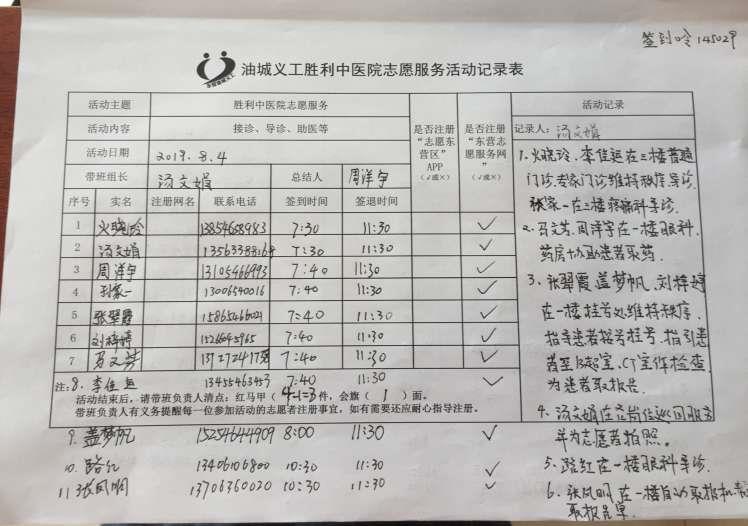 签到吟 145029
油城义工胜利中医院志愿服务活动记录表
活动主题 胜利中医院志愿服务 是否注册“志愿东营区”APP（√或×） 是否注册“东营志愿服务网”（√或×） 活动记录
活动内容 接诊、导诊、助医等 记录人：汤文娟
活动日期 2019.8.4
带班组长 汤文娟 总结人 周洋宇
序号 实名 注册网名 联系电话 签到时间 签退时间
1 火晓玲 13854668983 7:30 11:30 ✓
2 汤文娟 13563388168 7:30 11:30 ✓
3 周洋宇 13105466993 7:40 11:30 ✓
4 家一 13006540016 7:40 11:30 ✓
5 张翠霞 15865266021 7:40 11:30 ✓
6 刘梓婷 15266645965 7:40 11:30 ✓
7 马文芳 7:40 11:30 ✓
注：8. 李佳 13455463453 7:40 11:30 ✓
活动结束后，请带班负责人清点：红马甲（4-1=3）件，会旗（1）面。
带班负责人有义务提醒每一位参加活动的志愿者注册事宜，如有需要还应耐心指导注册。
9. 盖梦帆 15254644909 8:00 11:30 ✓
10. 路红 13406106800 10:30 11:30 ✓
11 张凤明 13706360020 10:30 11:30 ✓
1. 火晓玲、李佳 在三楼普通
门诊、专家门诊维持秩序、导诊.
张家一在二楼疼痛科导诊.
2. 马文芳、周洋宇在一楼眼科、
药房协助患者取药.
3. 张翠霞 盖梦帆、刘梓婷
在一楼挂号处维持秩序、
指导患者按号挂号、指引患
者至B超室、CT室作检查、
为患者取报告.
4. 汤文娟在各岗位巡回服务
并为志愿者拍照.
5. 路红在一楼眼科导诊.
6. 张凤明在一楼自动取报机帮
取报告单.